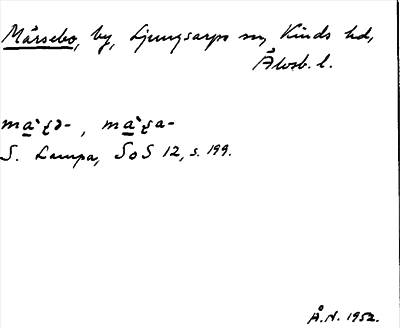 Mårsebo, by, Ljungsarps sn, Kinds hd,
Älvsb. l.
S. Lampa, SoS 12, s. 199.
Å.N. 1952.